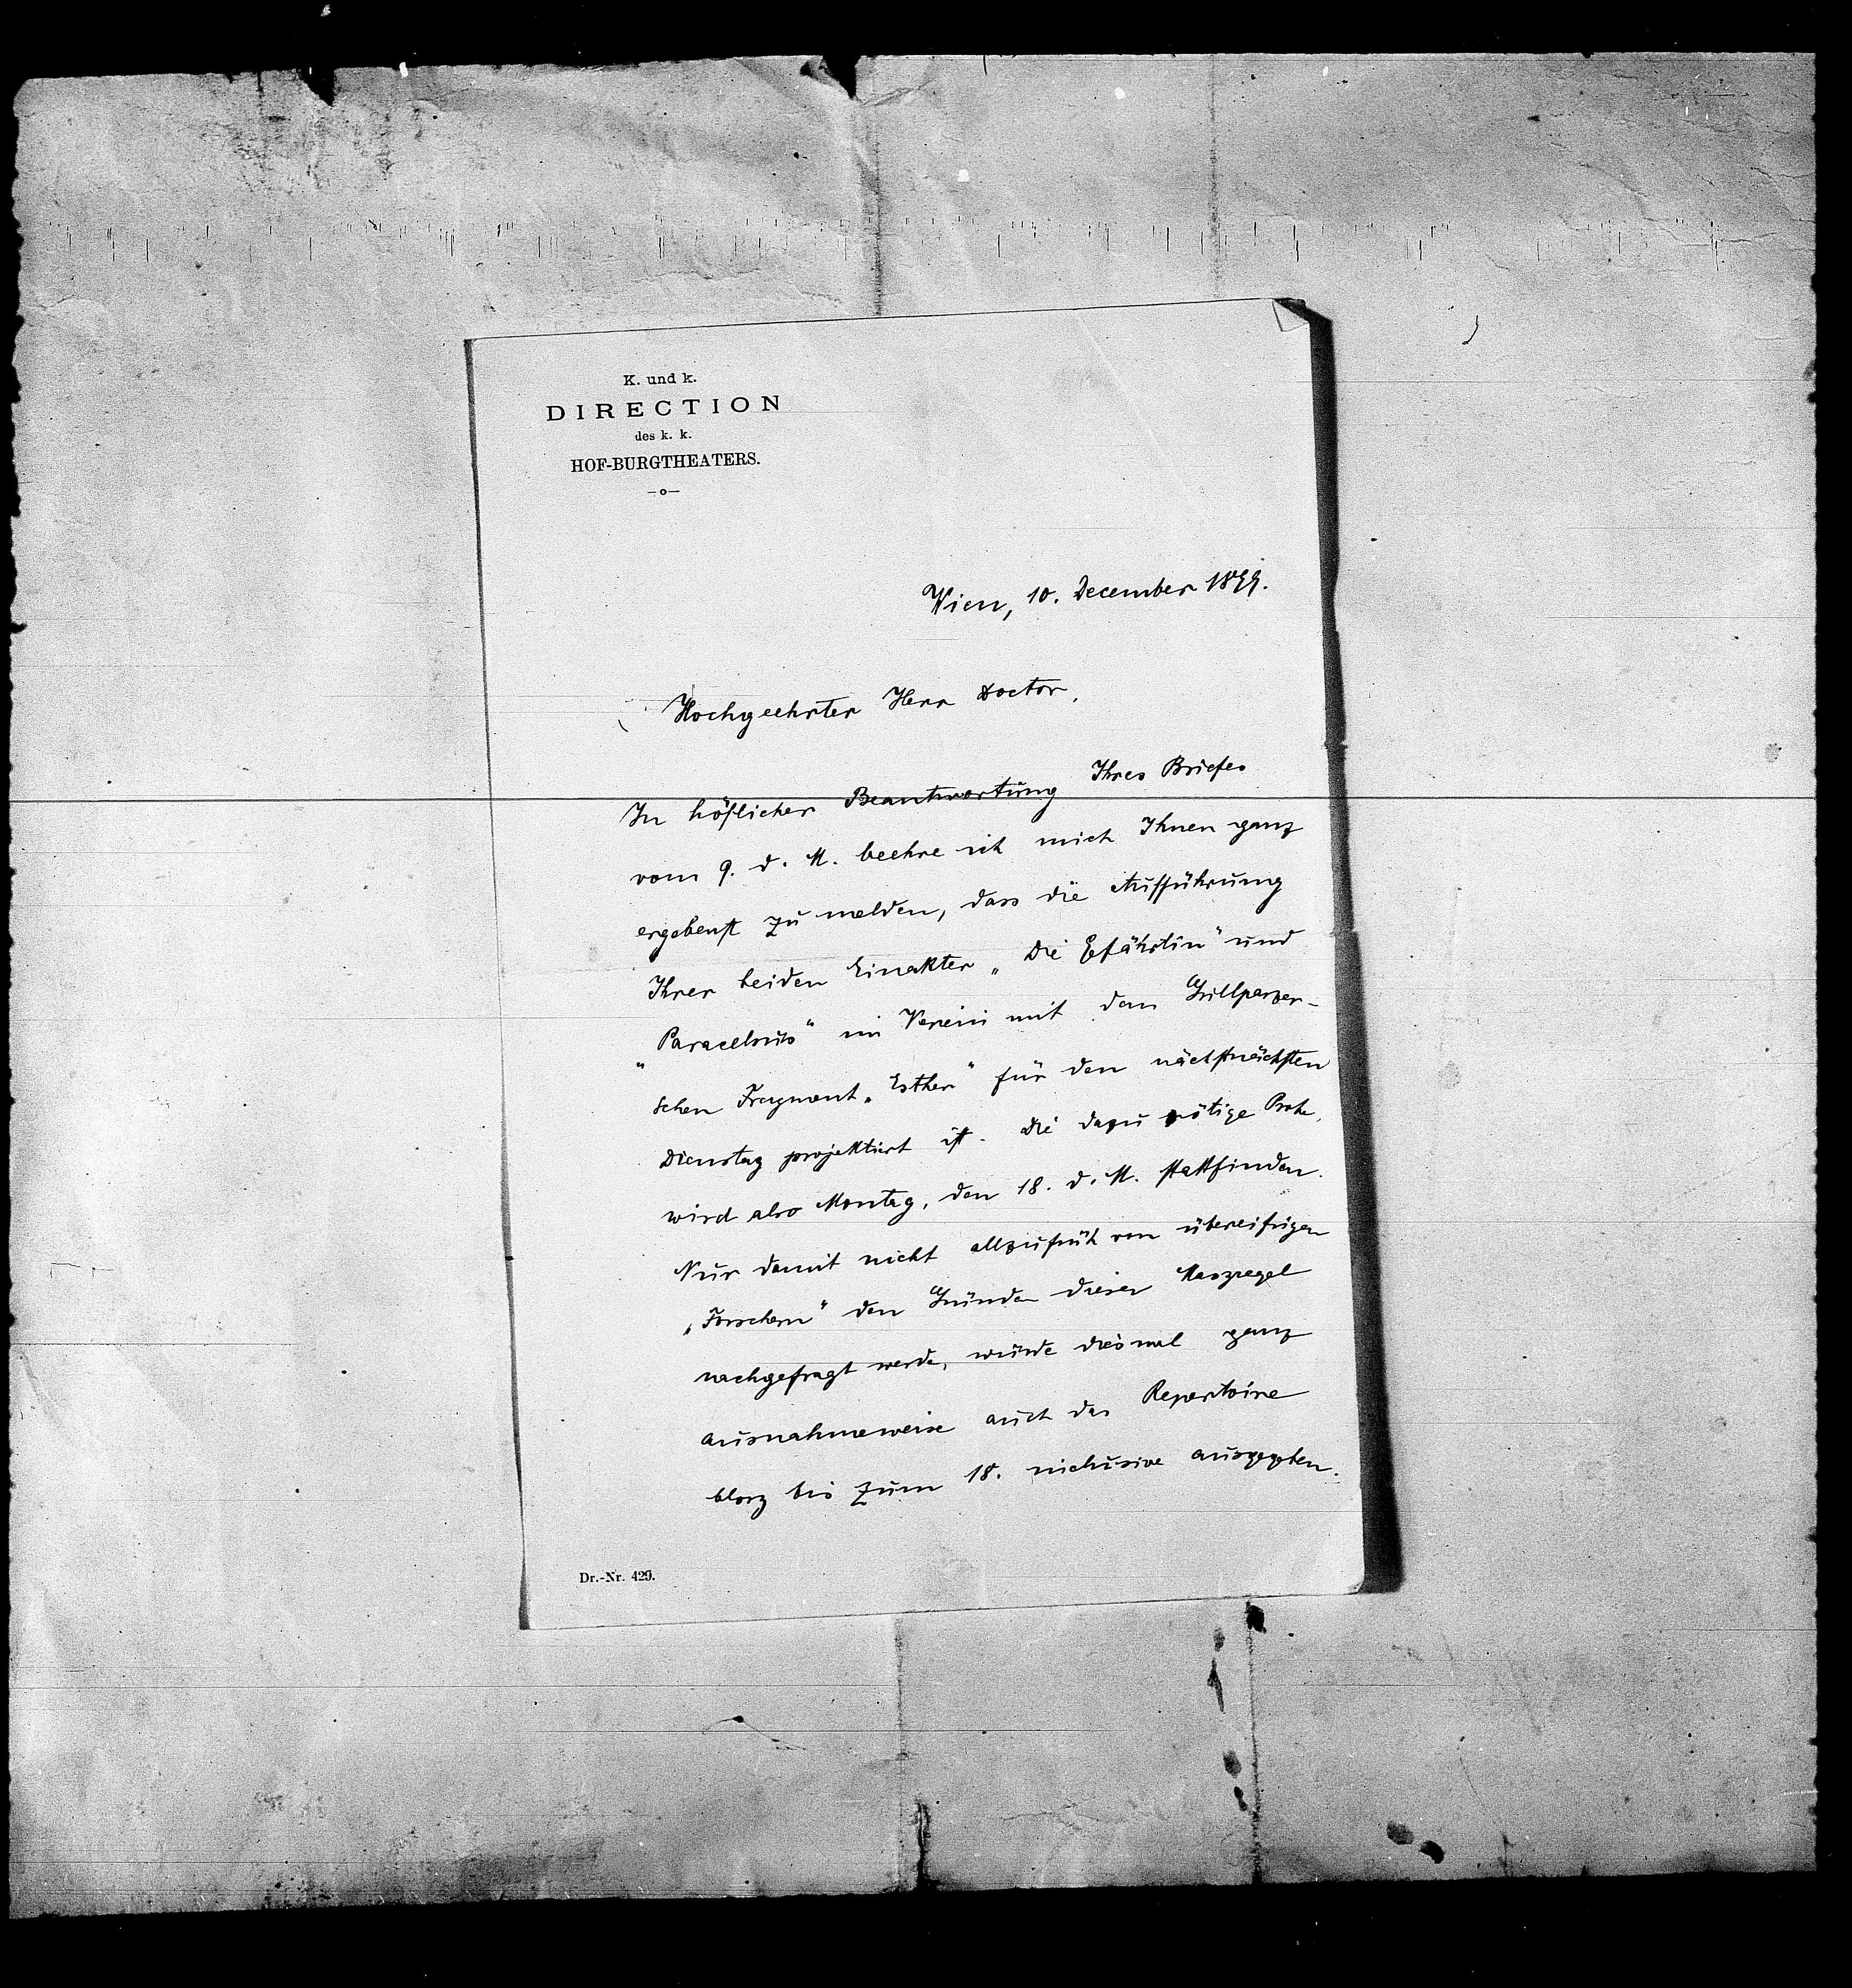 K. und k.
DIRECTION
des k. k.
HOF-BURGTHEATERS.
Wien, 10. December 1899.
Hochgeehrter Herr Doctor,
In höflicher Beantwortung Ihres Briefes
vom 9. d. M. beehre ich mich Ihnen ganz
ergebenst zu melden, dass die Aufführung
Ihrer beiden Einakter „Die Gefährtin“ und
„Paracelsus“ im Verein mit dem Grillparzer-
schen Fragment „Esther“ für den nächstnächsten
Dienstag projektiert ist. Die dazu nötige Probe
wird also Montag, den 18. d. M. stattfinden.
Nur damit nicht allzufrüh von übereifrigen
„Forschern“ den Gründen dieser Maszregel
nachgefragt werde, würde diesmal ganz
ausnahmsweise auch das Repertoire
blosz bis zum 18. inclusive ausgegeben.
Dr.-Nr. 429.